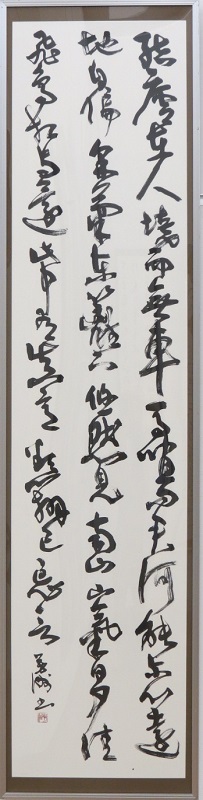 結廬在人境而無車馬喧問君何能爾心遠
地自偏采菊東籬下悠然見南山山氣日夕佳
飛鳥相與還此中有真意欲辨已忘言